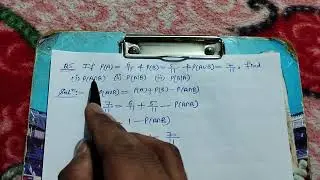 Q5. If P(A) = 6/11, P(B) = 5/11, P(A∪B) = 7/11. Find
(i) P(A∩B) (ii) P(A|B) (iii) P(B|A)
Solⁿ:- P(A∪B) = P(A) + P(B) - P(A∩B)
7/11 = 6/11 + 5/11 - P(A∩B)
1 - P(A∩B)
7/11